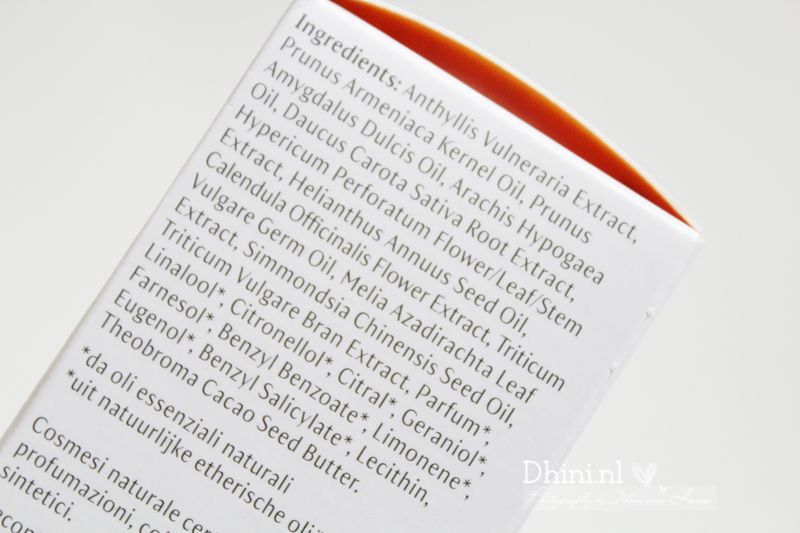 Ingredients: Anthyllis Vulneraria Extract,
Prunus Armeniaca Kernel Oil, Prunus
Amygdalus Dulcis Oil, Arachis Hypogaea
Oil, Daucus Carota Sativa Root Extract,
Hypericum Perforatum Flower/Leaf/Stem
Extract, Helianthus Annuus Seed Oil,
Calendula Officinalis Flower Extract, Triticum
Vulgare Germ Oil, Melia Azadirachta Leaf
Extract, Simmondsia Chinensis Seed Oil,
Triticum Vulgare Bran Extract, Parfum*,
Linalool*, Citronellol*, Citral*, Geraniol*,
Farnesol*, Benzyl Benzoate*, Limonene*,
Eugenol*, Benzyl Salicylate*, Lecithin,
Theobroma Cacao Seed Butter.
*da oli essenziali naturali
*uit natuurlijke etherische oli
Cosmesi naturale cer
profumazioni, co
sintetici.
Dhini.nl
Photography by Dhini van